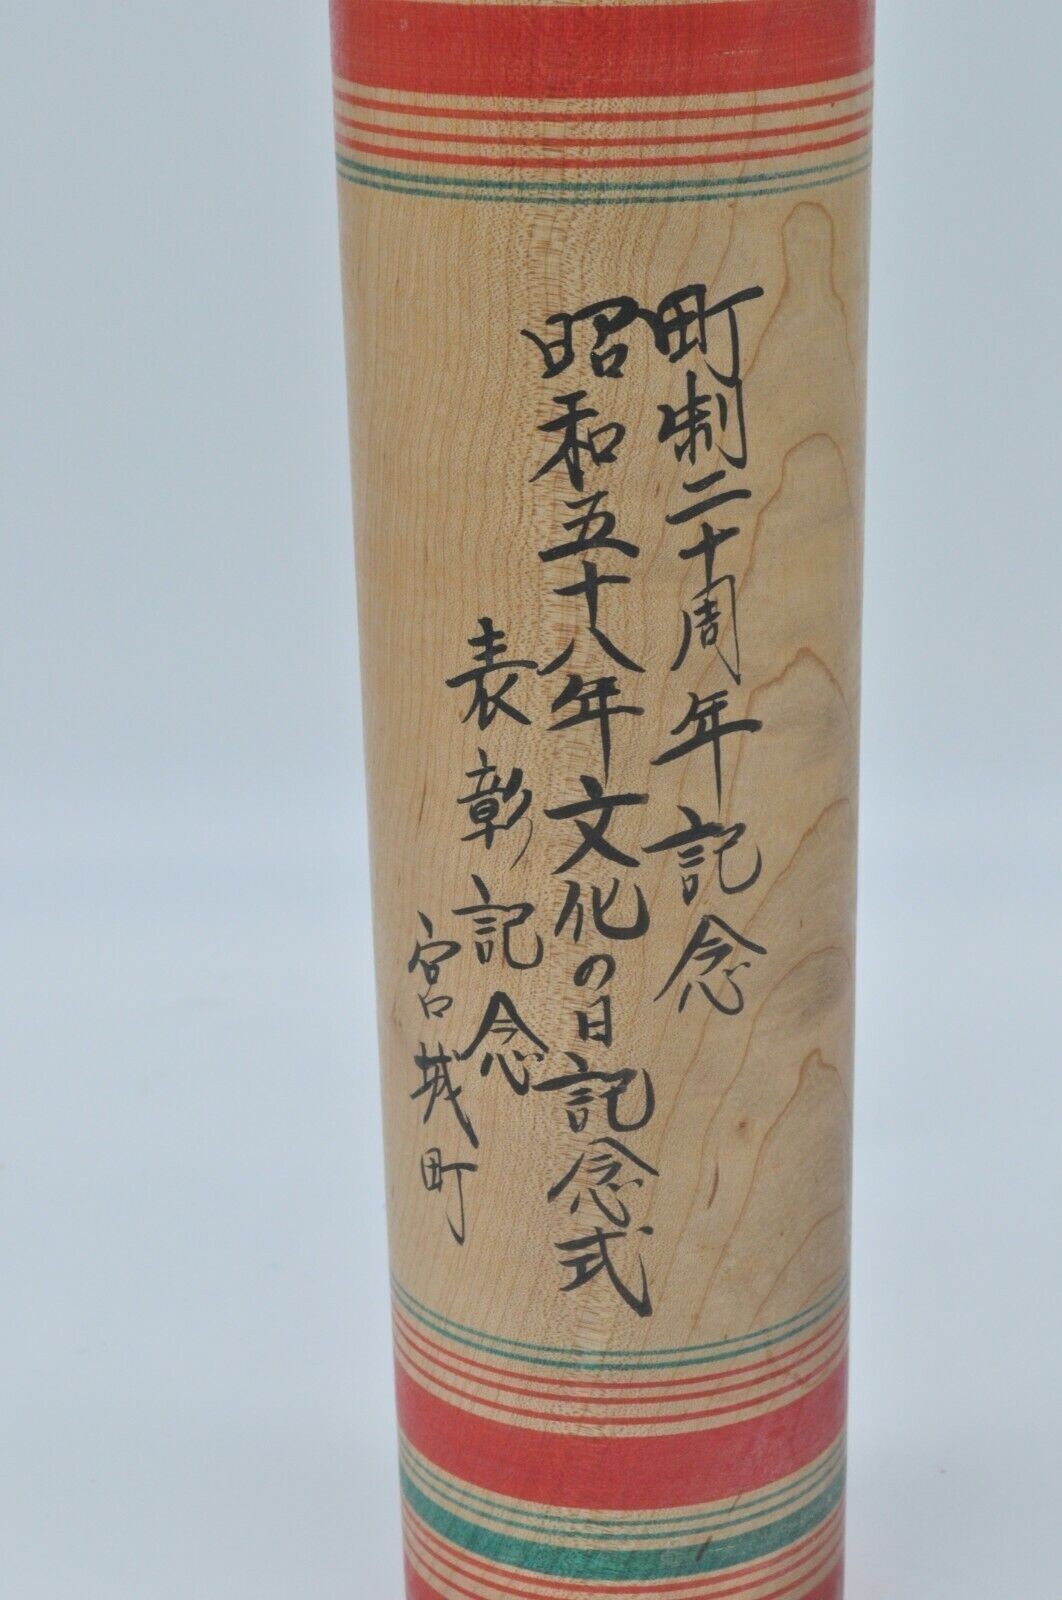 町制二十周年記念
昭和五十八年文化の日記念式
表彰記念
宮城町